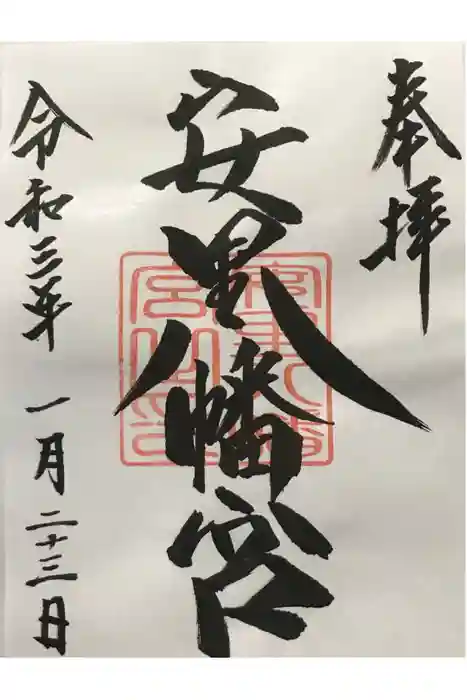 奉拝
安里八幡宮
令和三年一月二十三日